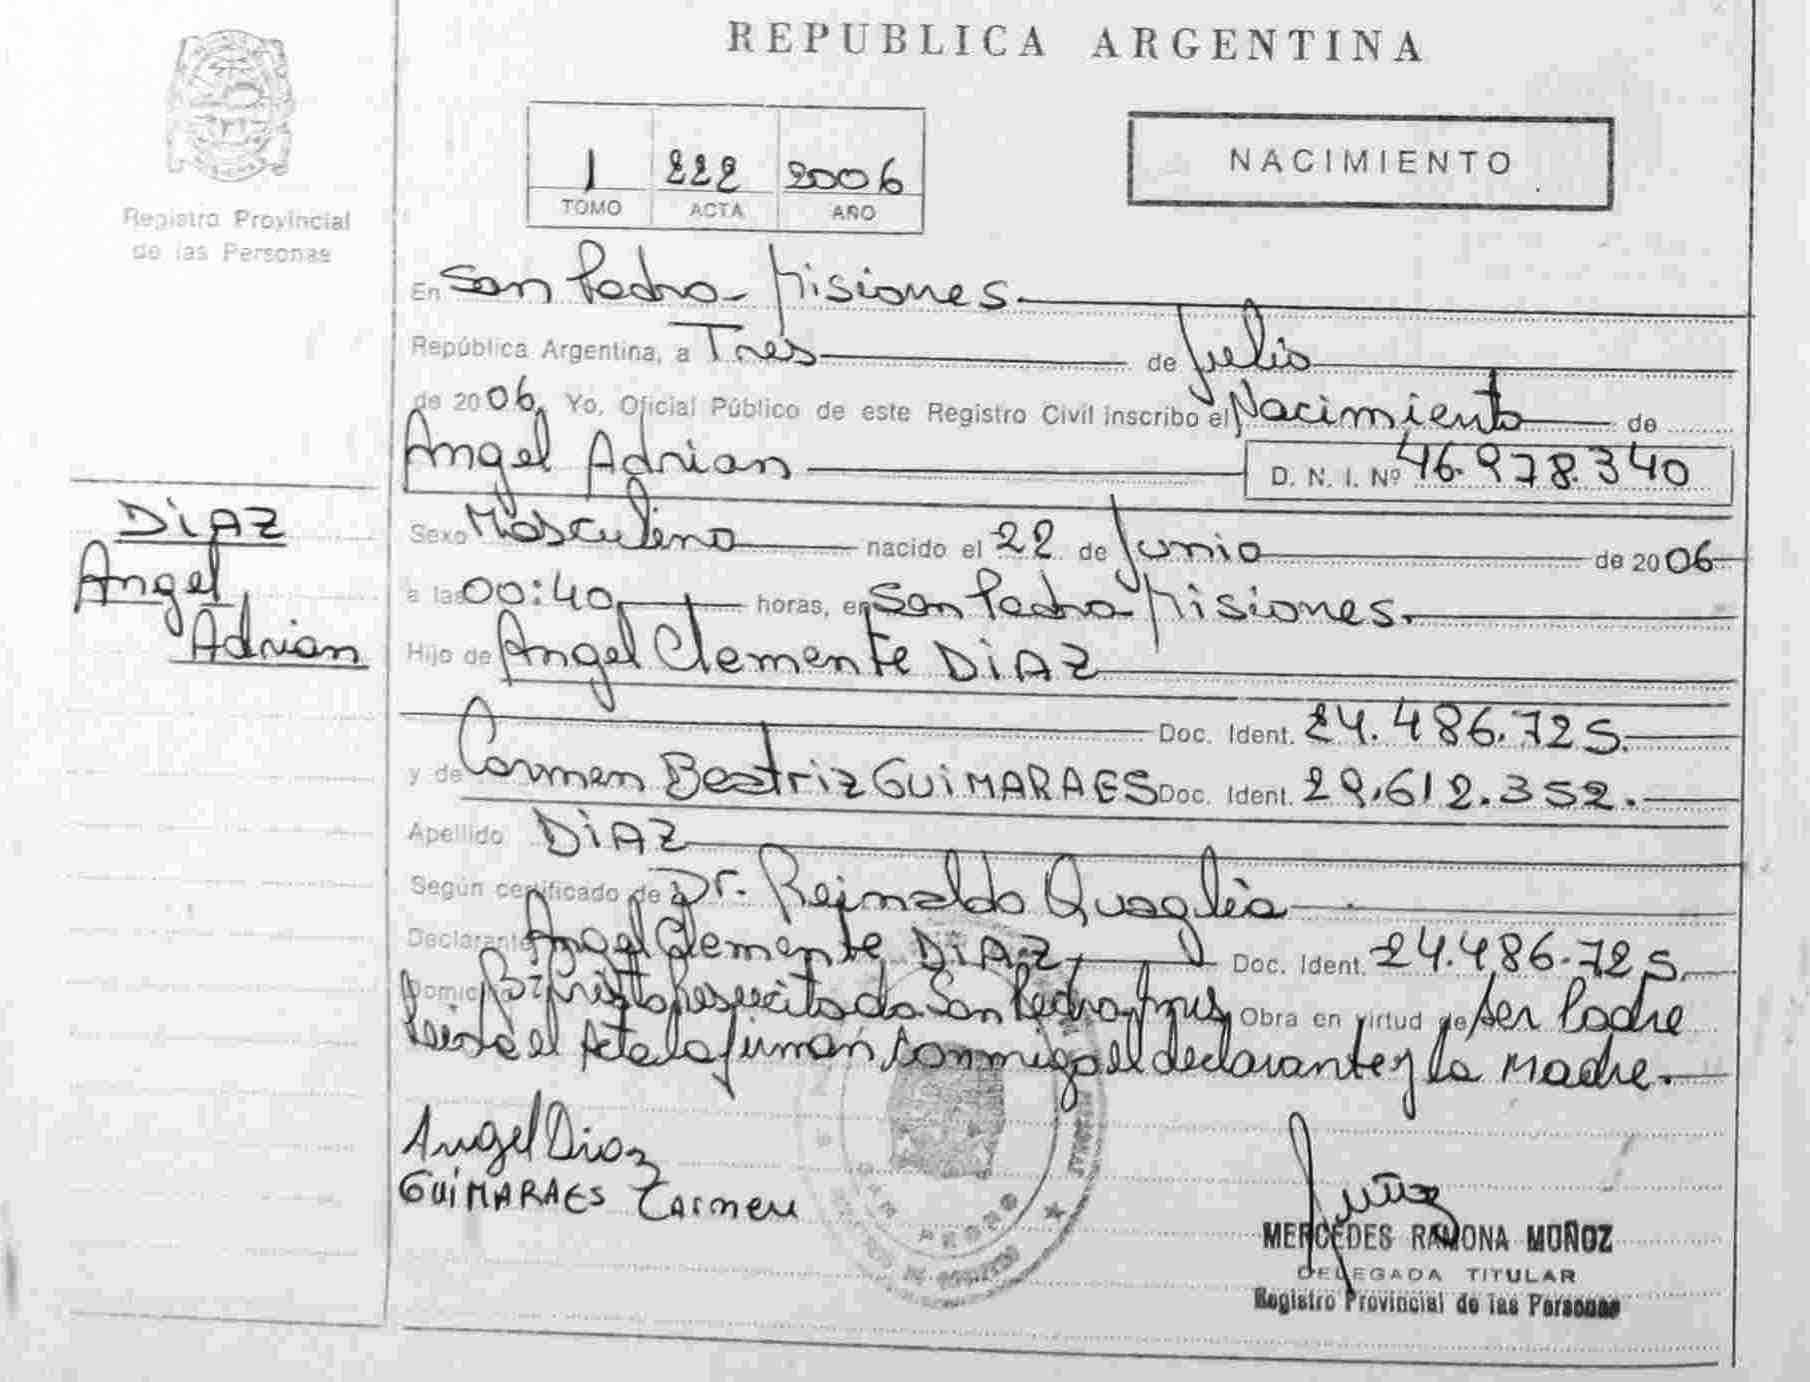 REPUBLICA ARGENTINA
Registro Provincial
de las Personas
1 222 2006
TOMO ACTA AÑO
NACIMIENTO
En San Pedro - Misiones
República Argentina, a Tres de Julio
de 2006 Yo, Oficial Público de este Registro Civil inscribo el Nacimiento de
Angel Adrian D. N. I. Nº 46.978.340
DiAZ
Angel
Adrian
Sexo Masculino nacido el 22 de Junio de 2006
a las 00:40 horas, en San Pedro - Misiones.
Hijo de Angel Clemente DiAZ
Doc. Ident. 24.486.725.
y de Carmen Beatriz GUiMARAES Doc. Ident. 29.612.352.
Apellido DiAZ
Según certificado de Dr. Reinaldo Quaglia
Declarante Angel Clemente DiAZ Doc. Ident. 24.486.725.
Domicilio Bº Cristo Resucitado San Pedro, Mnes Obra en virtud de ser Padre
Leida el Acta la firman conmigo el declarante y la Madre.
Angel Diaz
GUiMARAES Carmen
SAN PEDRO
MERCEDES RAMONA MUÑOZ
DELEGADA TITULAR
Registro Provincial de las Personas